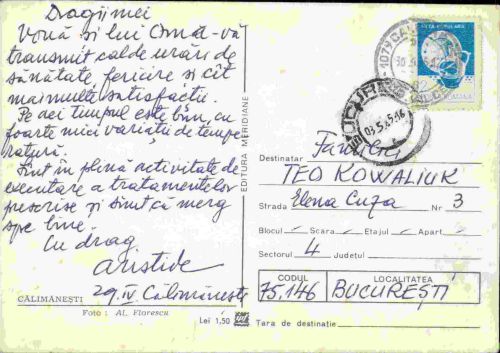 Dragii mei
Vouă și lui Oma - vă
transmit calde urări de
sănătate, fericire și cît
mai multe satisfacții.
Pe aci timpul este bun, cu
foarte mici variații de tempe
ratură.
Sînt în plină activitate de
executare a tratamentelor
prescrise și sînt că merg
spre bine.
Cu drag
Aristide
29.IV Călimănești
CĂLIMĂNEȘTI
Foto : AL. Florescu
Lei 1,50
EDITURA MERIDIANE
Destinatar Familiei
TEO KOWALIUK
Strada Elena Cuza Nr 3
Blocul Scara Etajul Apart
Sectorul 4 Județul
CODUL LOCALITATEA
75,146 BUCUREȘTI
Tara de destinație